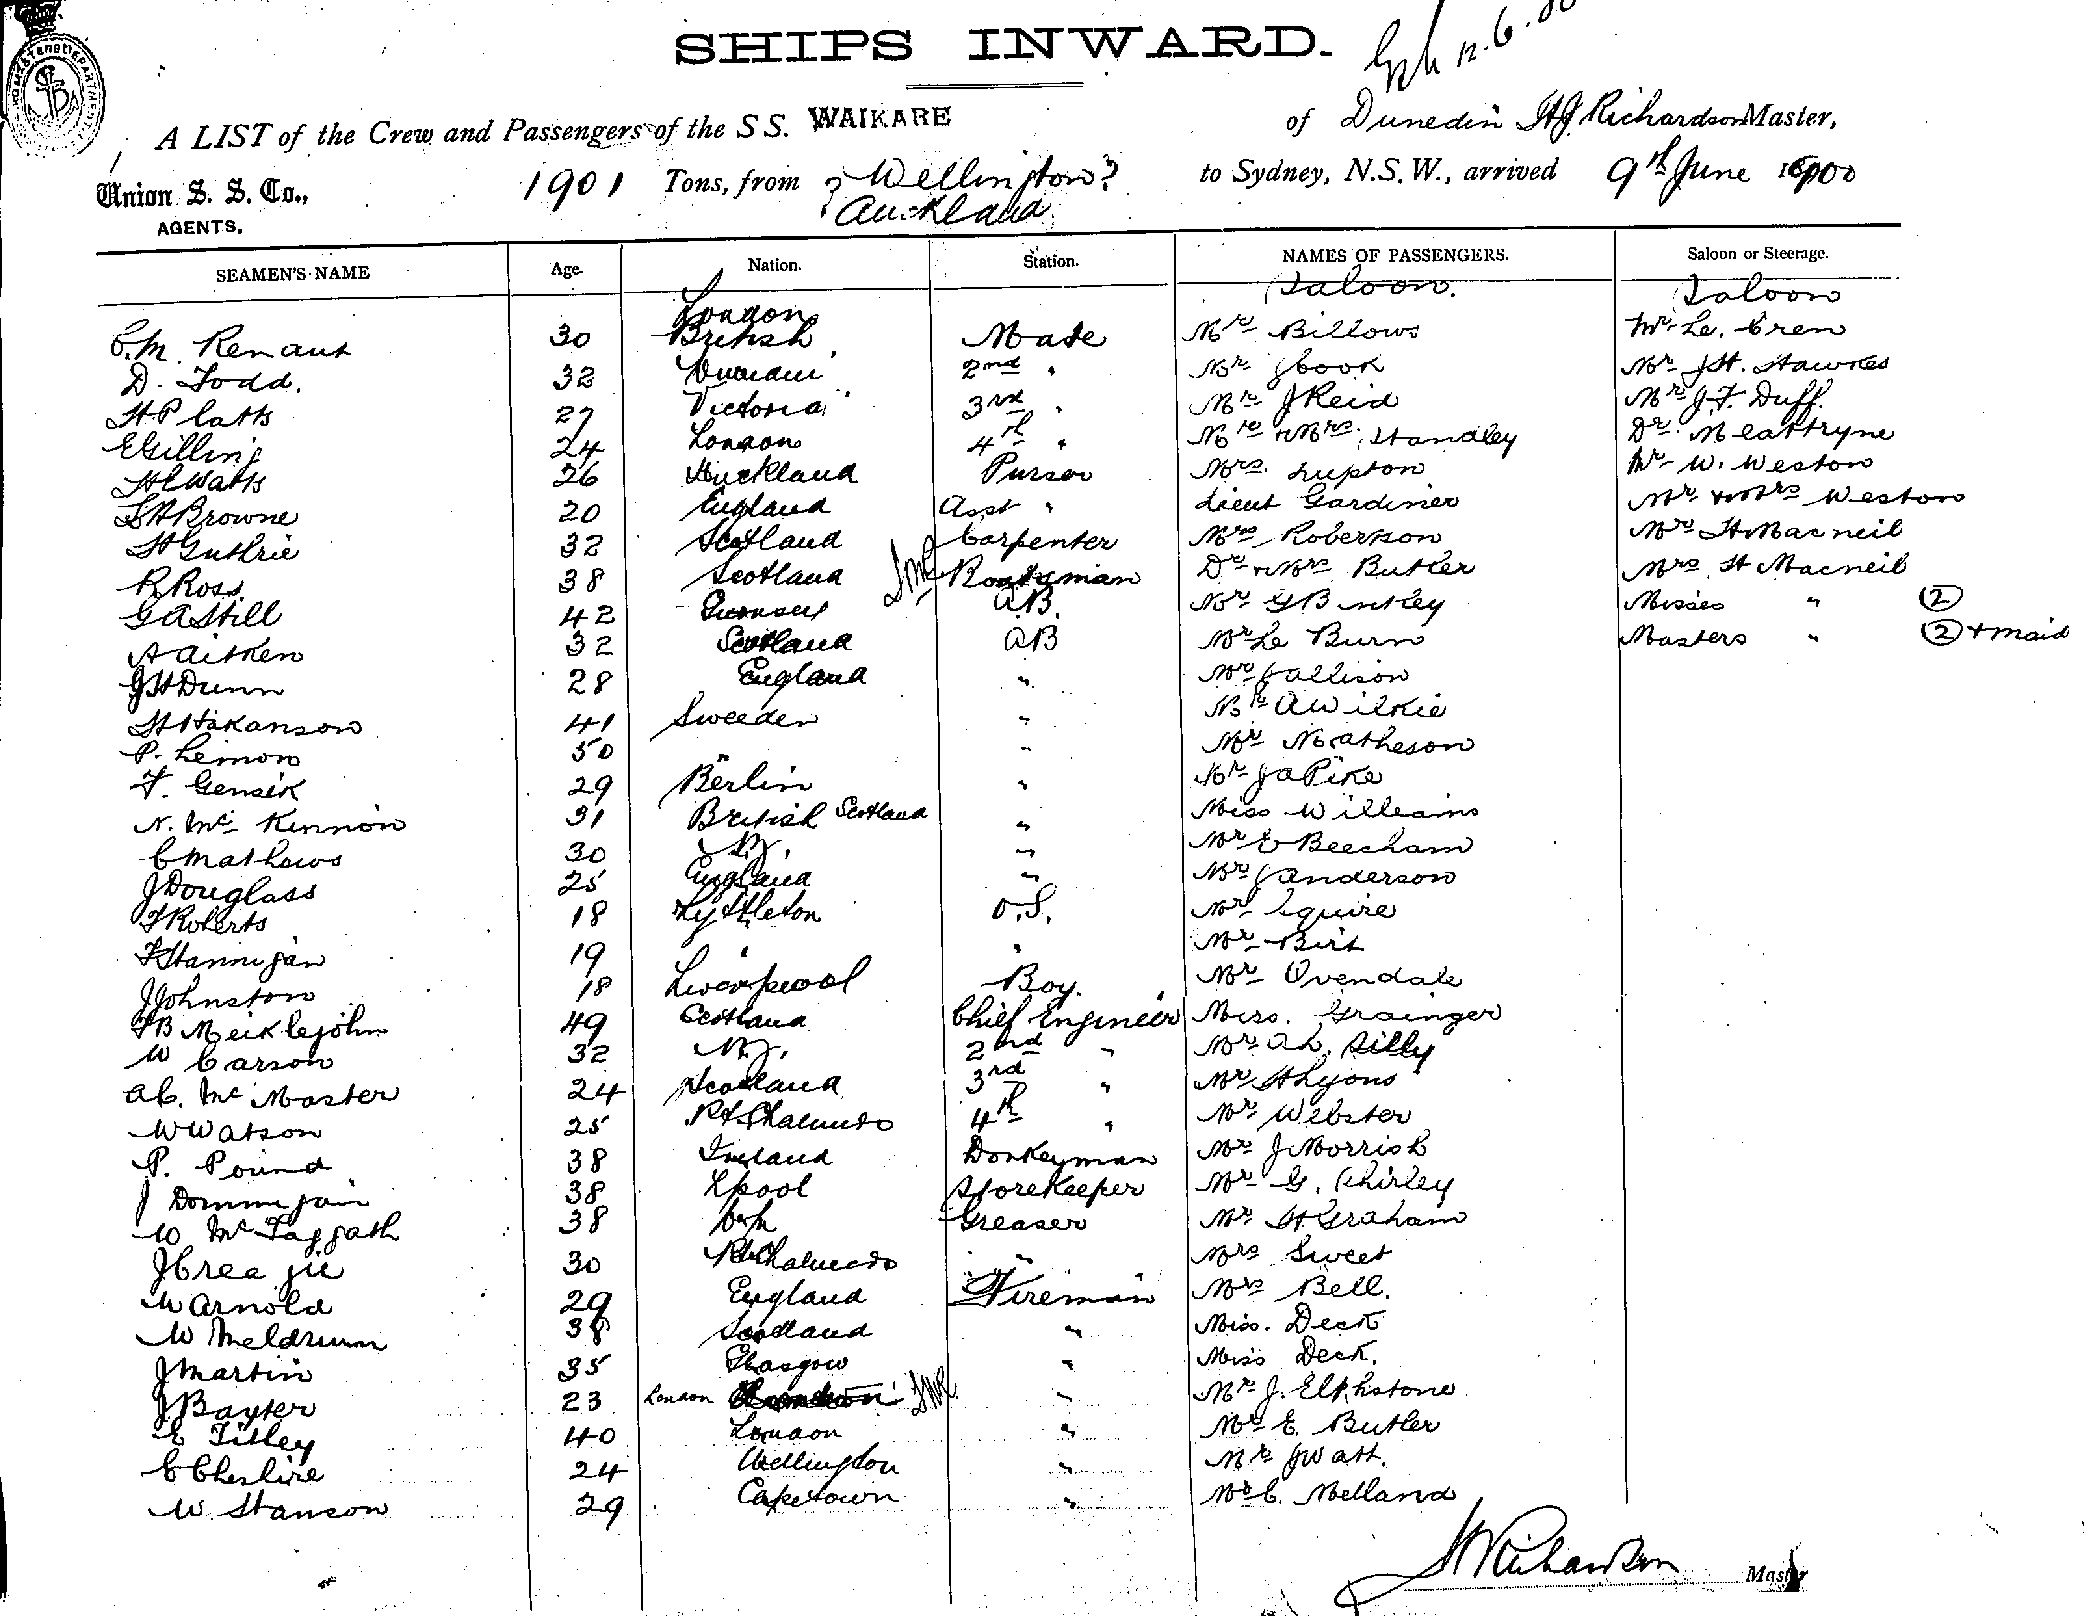 SHIPS INWARD.
12.6.00
A LIST of the Crew and Passengers of the S S. WAIKARE of Dunedin HJ Richardson Master,
Union S. S. Co., 1901 Tons, from Wellington? to Sydney, N.S.W., arrived 9th June 1900
AGENTS. Auckland
SEAMEN'S NAME Age. Nation. Station. NAMES OF PASSENGERS. Saloon or Steerage.
Saloon. Saloon
London
C.M. Renaut 30 British Mate Billows Mr Le. Cren
D. Todd. 32 2nd " Mr J Cook Mr JH. Hawkes
H Platts 27 Victoria 3rd " Mr J Reid Mr J.F. Duff.
E Gilling 24 London 4th " Mr & Mrs Standley Dr.
H C Watts 26 Auckland Purser Mrs. Lupton Mr W. Weston
Browne 20 England Asst " Lieut Gardiner Mr & Mrs Weston
H Guthrie 32 Scotland Carpenter Mrs Robertson Mr H Macneil
R Ross. 38 Scotland Dr & Mrs Butler Mrs H Macneil
G A Hill 42 Guernsey A.B. Mr Misses " (2)
A Aitken 32 Scotland AB Mr Le Burn Masters " (2) + maid
J H Dunn 28 England " Mr
H Hakanson 41 Sweeden " Mr A Wilkie
P. Lemon 50 " " Mr Matheson
F. Gensik 29 Berlin " Mr J A Pike
N. Mc Kinnon 31 British Scotland " Miss Williams
C Mathews 30 N.Z. " Mr E Beecham
J Douglass 25 England " Mr J Anderson
F Roberts 18 Lyttleton O.S. Mr Squire
F Hannigan 19 " " Mr Birt
J Johnston 18 Liverpool Boy. Mr Ovendale
Meiklejohn 49 Scotland Chief Engineer Miss. Grainger
W Carson 32 N.Z. 2nd " Mr A L.
A C. Mc Master 24 Scotland 3rd " Mr H Lyons
W Watson 25 Pt Chalmers 4th " Mr Webster
P. Pound 38 Ireland Donkeyman Mr J Morrish
J 38 Lpool Storekeeper Mr G. Shirley
W Mc Taggath 38 Greaser Mr H. Graham
J Creagie 30 Pt Chalmers " Mrs Sweet
W Arnold 29 England Fireman Mrs Bell.
W Meldrum 38 Scotland " Miss. Deck
J Martin 35 Glasgow " Miss Deck.
J Baxter 23 London " Mr J.
E Titley 40 London " Mr E. Butler
C Cheshire 24 Wellington " Mr J Watt.
W. Stanson 29 Capetown " C. Melland
H Richardson Master